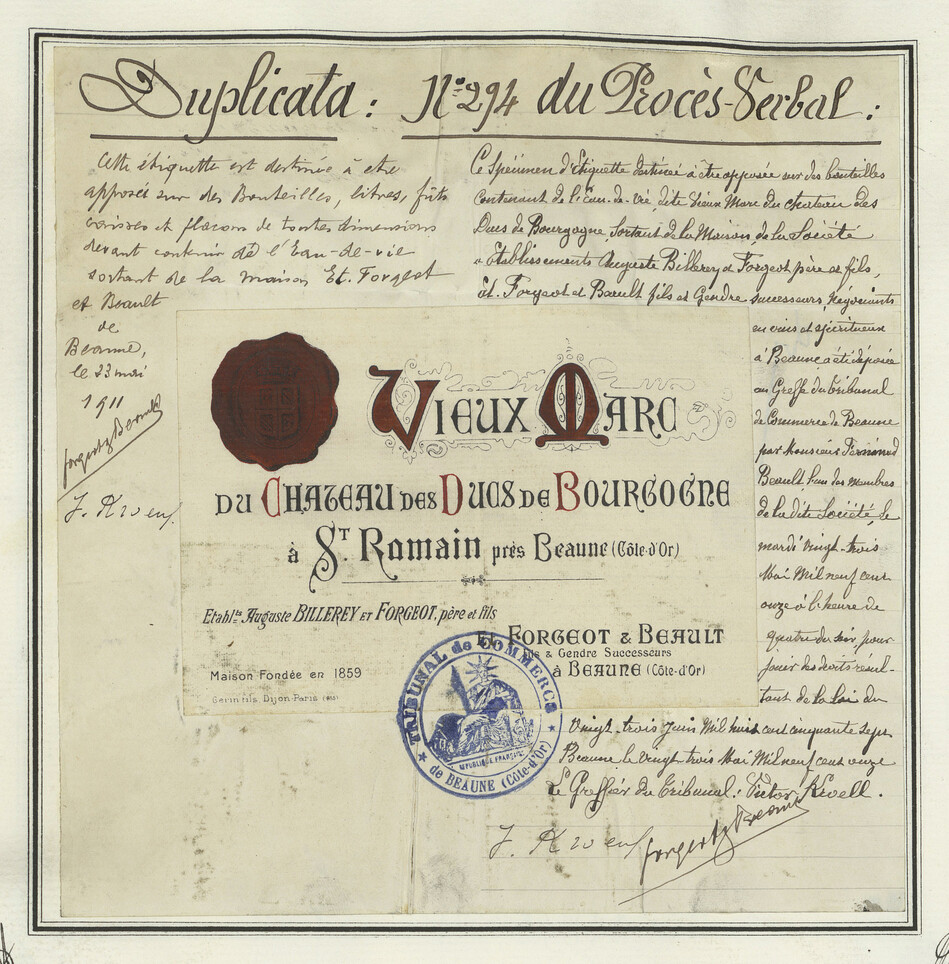 Duplicata : N° 294 du Procès-Verbal :
Cette étiquette est destinée à être
apposée sur des Bouteilles, litres, fûts
caisses et flacons de toutes dimensions
devant contenir de l'Eau-de-vie
sortant de la maison Et. Forgeot
et Beault
de
Beaune,
le 23 mai
1911
Ce Spécimen d'Etiquette destinée à être apposée sur des bouteilles
contenant de l'eau-de-vie, dite Vieux Marc du chateau des
Ducs de Bourgogne, sortant de la Maison, de la Société
Etablissements Auguste Billerey et Forgeot père et fils,
Et. Forgeot et Beault fils et Gendre successeurs, Négociants
en vins et spiritueux
à Beaune, a été déposée
au Greffe du Tribunal
de Commerce de Beaune
par Monsieur Fernand
Beault l'un des membres
de la dite Société, le
mardi vingt-trois
Mai Mil neuf cent
onze à l'heure de
quatre du soir, pour
jouir des droits résul-
tant de la loi du
Vingt-trois Juin Mil huit cent cinquante sept
Beaune le vingt trois Mai Mil neuf cent onze
Le Greffier du Tribunal : Victor
VIEUX MARC
DU CHATEAU DES DUCS DE BOURGOGNE
à ST. Romain près Beaune (Côte-d'Or)
Etablts. Auguste BILLEREY ET FORGEOT, père et fils
Et. FORGEOT & BEAULT
Fils & Gendre Successeurs
à BEAUNE (Côte-d'Or)
Maison Fondée en 1859
Gerin fils Dijon-Paris
TRIBUNAL de COMMERCE
RÉPUBLIQUE FRANÇAISE
de BEAUNE (Côte-d'Or)